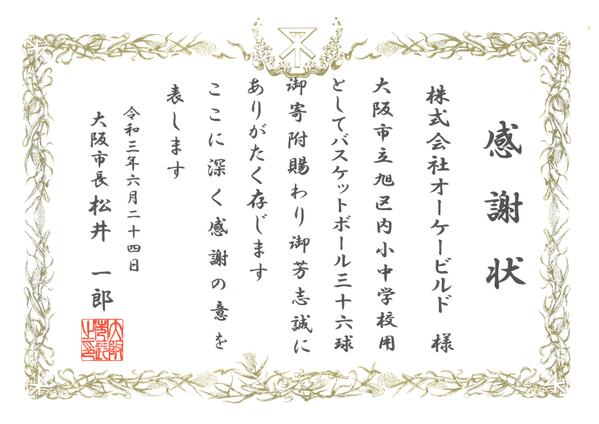 感謝状
株式会社オーケービルド 様
大阪市立旭区内小中学校用
としてバスケットボール三十六球
御寄附賜わり御芳志誠に
ありがたく存じます
ここに深く感謝の意を
表します
令和三年六月二十四日
大阪市長 松井 一郎